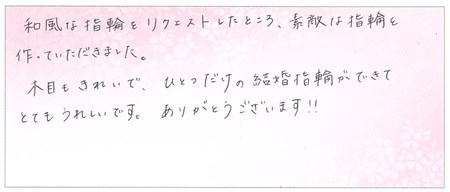 和風な指輪をリクエストしたところ、素敵な指輪を
作っていただきました。
木目もきれいで、ひとつだけの結婚指輪ができて
とてもうれしいです。ありがとうございます!!